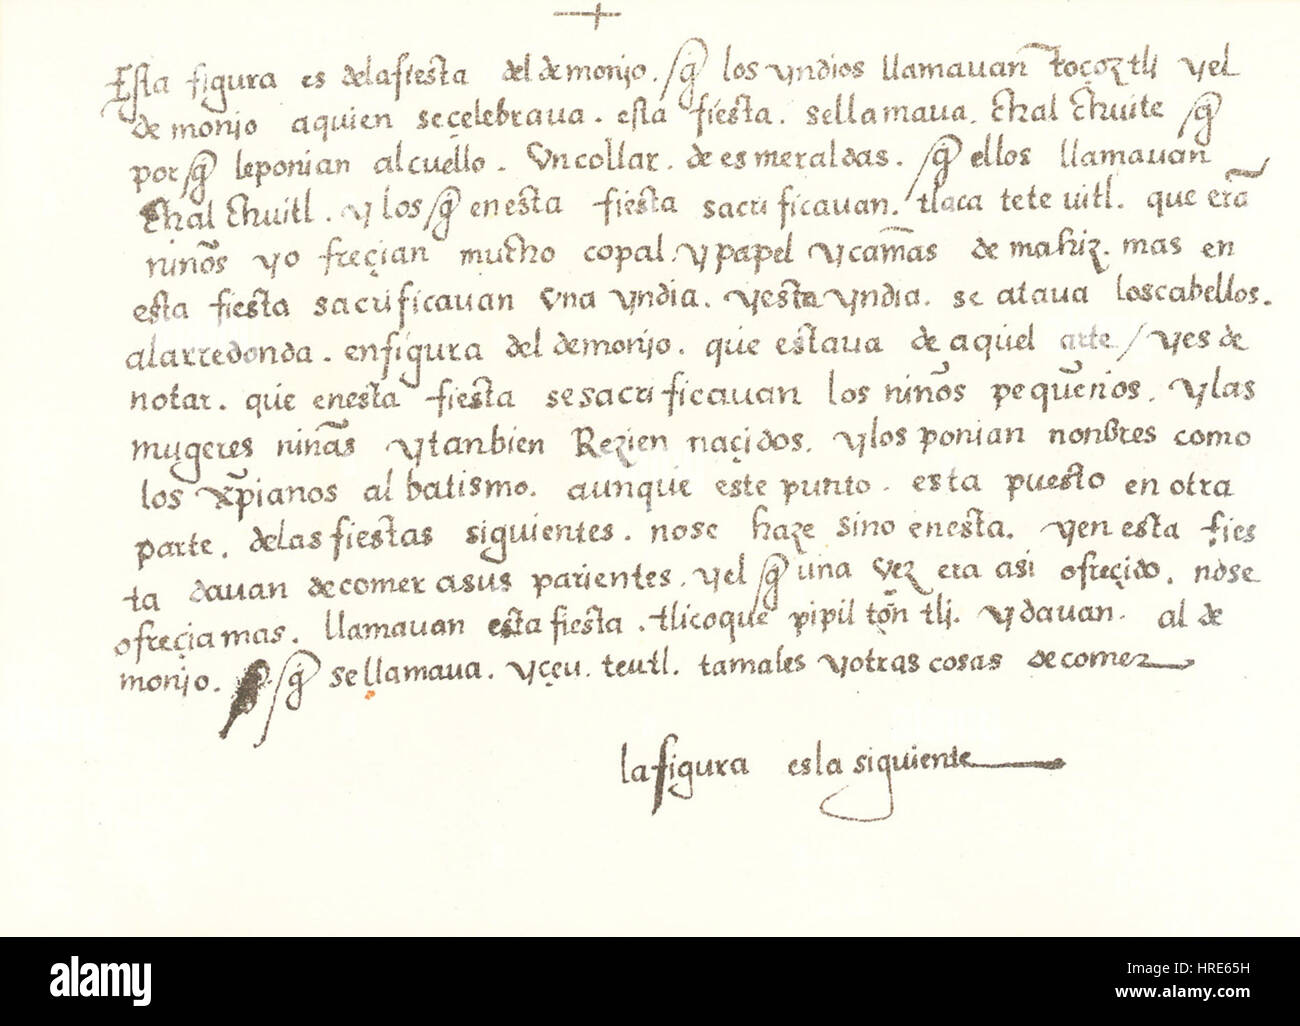 +
Esta figura es delafiesta del demonjo. q̃ los yndios llamauan toçoztlj yel
demonjo aquien secelebraua. esta fiesta. sellamaua. chalchuite q̃
por q̃ leponian alcuello. Vn collar. de esmeraldas. q̃ ellos llamauan
chalchuitl. y los q̃ enesta fiesta sacrificauan. tlaca tete uitl. que erã
niños yo freçian mucho copal. y papel y camãs de mahiz. mas en
esta fiesta sacrificauan vna yndia. yesta yndia. se ataua loscabellos.
alarredonda. enfigura del demonjo. que estaua de aquel arte / yes de
notar. que enesta fiesta sesacrificauan los niños pequeños. ylas
mugeres niñas ytanbien Rezien naçidos. ylos ponian nonbres como
los xp̃ianos al batismo. aunque este punto. esta puesto en otra
parte. delas fiestas siguientes. nose haze sino enesta. yen esta fies
ta dauan decomer asus parientes. yel q̃ una vez era asi ofreçido. nose
ofreçia mas. llamauan esta fiesta. tlicoque pipil tõn tlj. ydauan. al de
monjo. q̃ sellamaua. yçeu. teutl. tamales yotras cosas decomer
la figura esla siguiente
alamy
alamy
Image ID: HRE65H
www.alamy.com